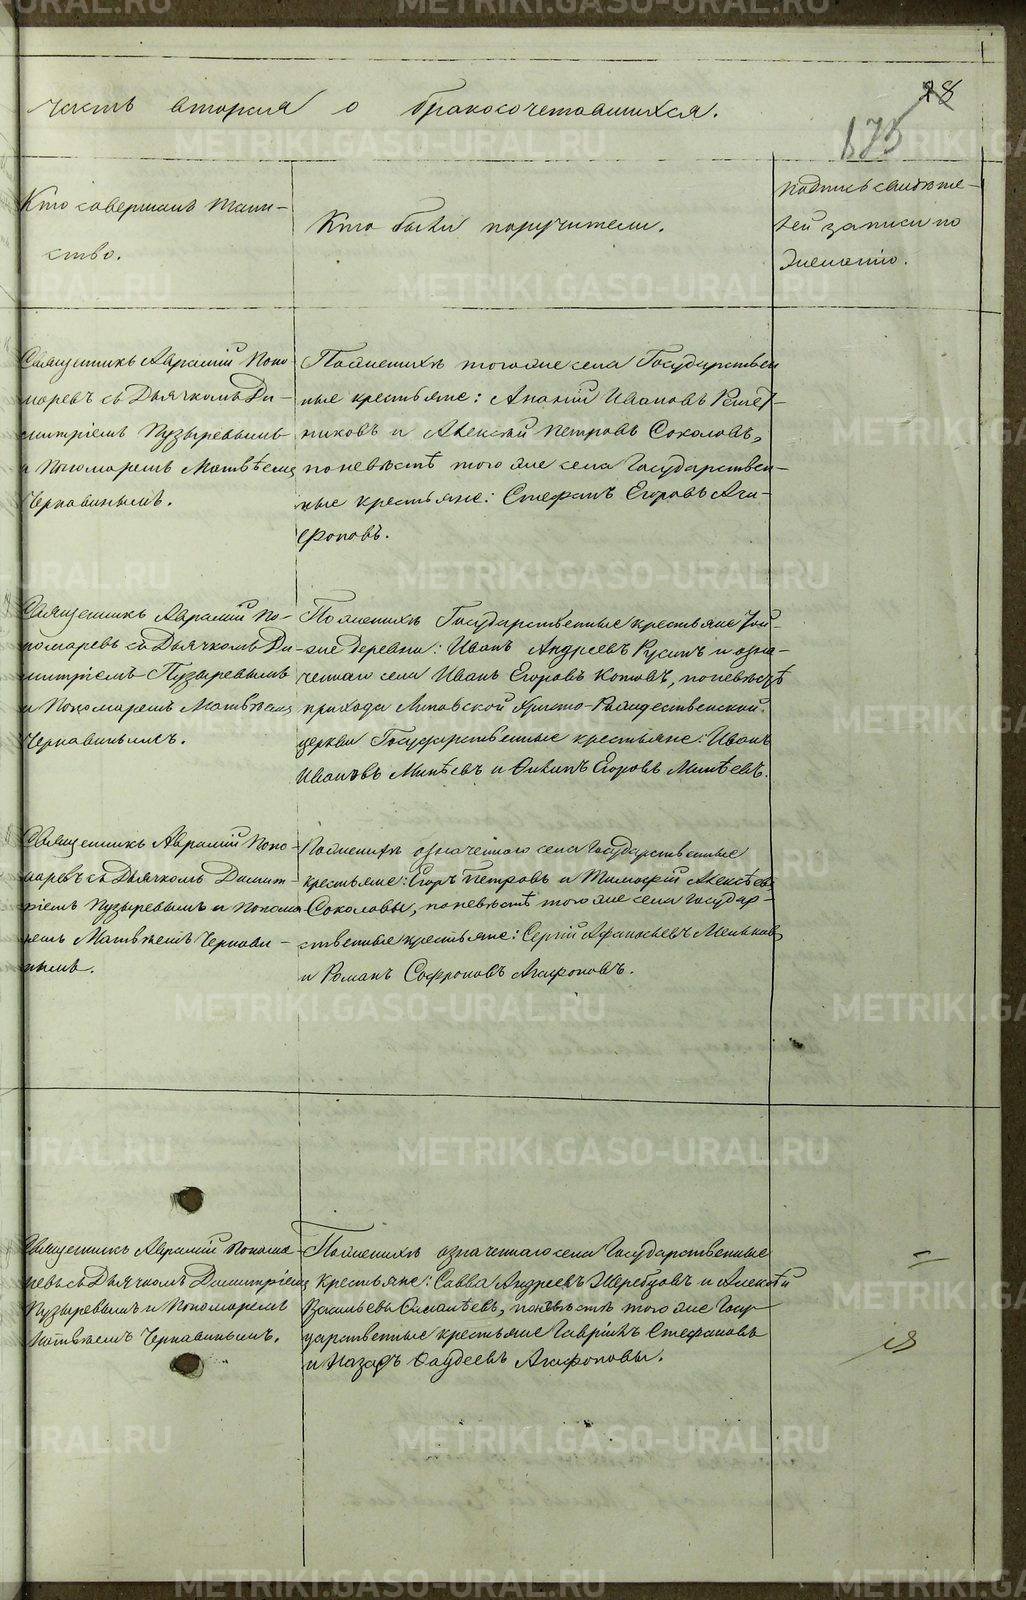 часть вторая о бракосочетавшихся.
28
175
Кто совершалъ таин-
ство.
Кто были поручители.
подпись свидѣте-
лей записи по
желанію.
Священникъ Аврамій Поно-
маревъ съ Дьячкомъ Ди-
митріемъ Пузыревымъ
и Пономаремъ Матвѣемъ
Чернавинымъ.
По женихѣ того же села Государствен
ные крестьяне: Ананій Ивановъ Решет-
никовъ и Алексѣй Петровъ Соколовъ,
по невѣстѣ того же села Государствен-
ные крестьяне: Стефанъ Егоровъ Ага-
фоновъ.
Священникъ Аврамій По-
номаревъ съ Дьячкомъ Ди-
митріемъ Пузыревымъ
и Пономаремъ Матвѣемъ
Чернавинымъ.
По женихѣ Государственные крестьяне той-
же деревни: Иванъ Андреевъ Русинъ и озна-
ченнаго села Иванъ Егоровъ Котовъ, по невѣстѣ
прихода Липовской Христо-Рождественской
церкви Государственные крестьяне: Иванъ
Ивановъ Минѣевъ и Филипъ Егоровъ Минѣевъ.
Священникъ Аврамій Поно-
маревъ съ Дьячкомъ Димит-
ріемъ Пузыревымъ и Понома-
ремъ Матвѣемъ Чернави-
нымъ.
По женихѣ означеннаго села Государственные
крестьяне: Егоръ Петровъ и Тимофей Алексѣевъ
Соколовы, по невѣстѣ того же села Государ-
ственные крестьяне: Сергій Афанасьевъ Мельковъ
и Романъ Софроновъ Агафоновъ.
Священникъ Аврамій Понома
ревъ съ Дьячкомъ Димитріемъ
Пузыревымъ и Пономаремъ
Матвѣемъ Чернавинымъ.
По женихѣ означеннаго села Государственные
крестьяне: Савва Андреевъ Жеребцовъ и Алексѣй
Васильевъ по невѣстѣ того же Госу-
дарственные крестьяне Гавріилъ Стефановъ
и Назаръ Фадеевъ Агафоновы.
METRIKI.GASO-URAL.RU